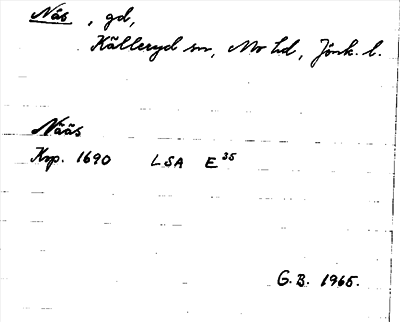 Näs, gd,
Källeryd sn, Mo hd, Jönk. l.
Nääs
Krp. 1690 LSA E 35
G.B. 1965.